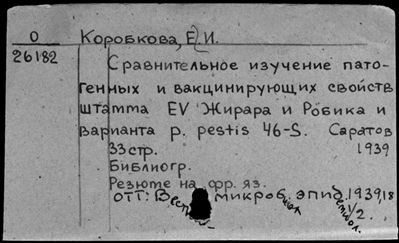 О Коробкова, Е.И.
26182
Сравнительное изучение пато-
генных и вакцинирующих свойств
штамма EV Жирара и Робика и
варианта p. pestis 46-S. Саратов
33стр. 1939
Библиогр.
Резюме на фр. яз.
отт: Вестник микробиол эпид 1939,18
1/2.